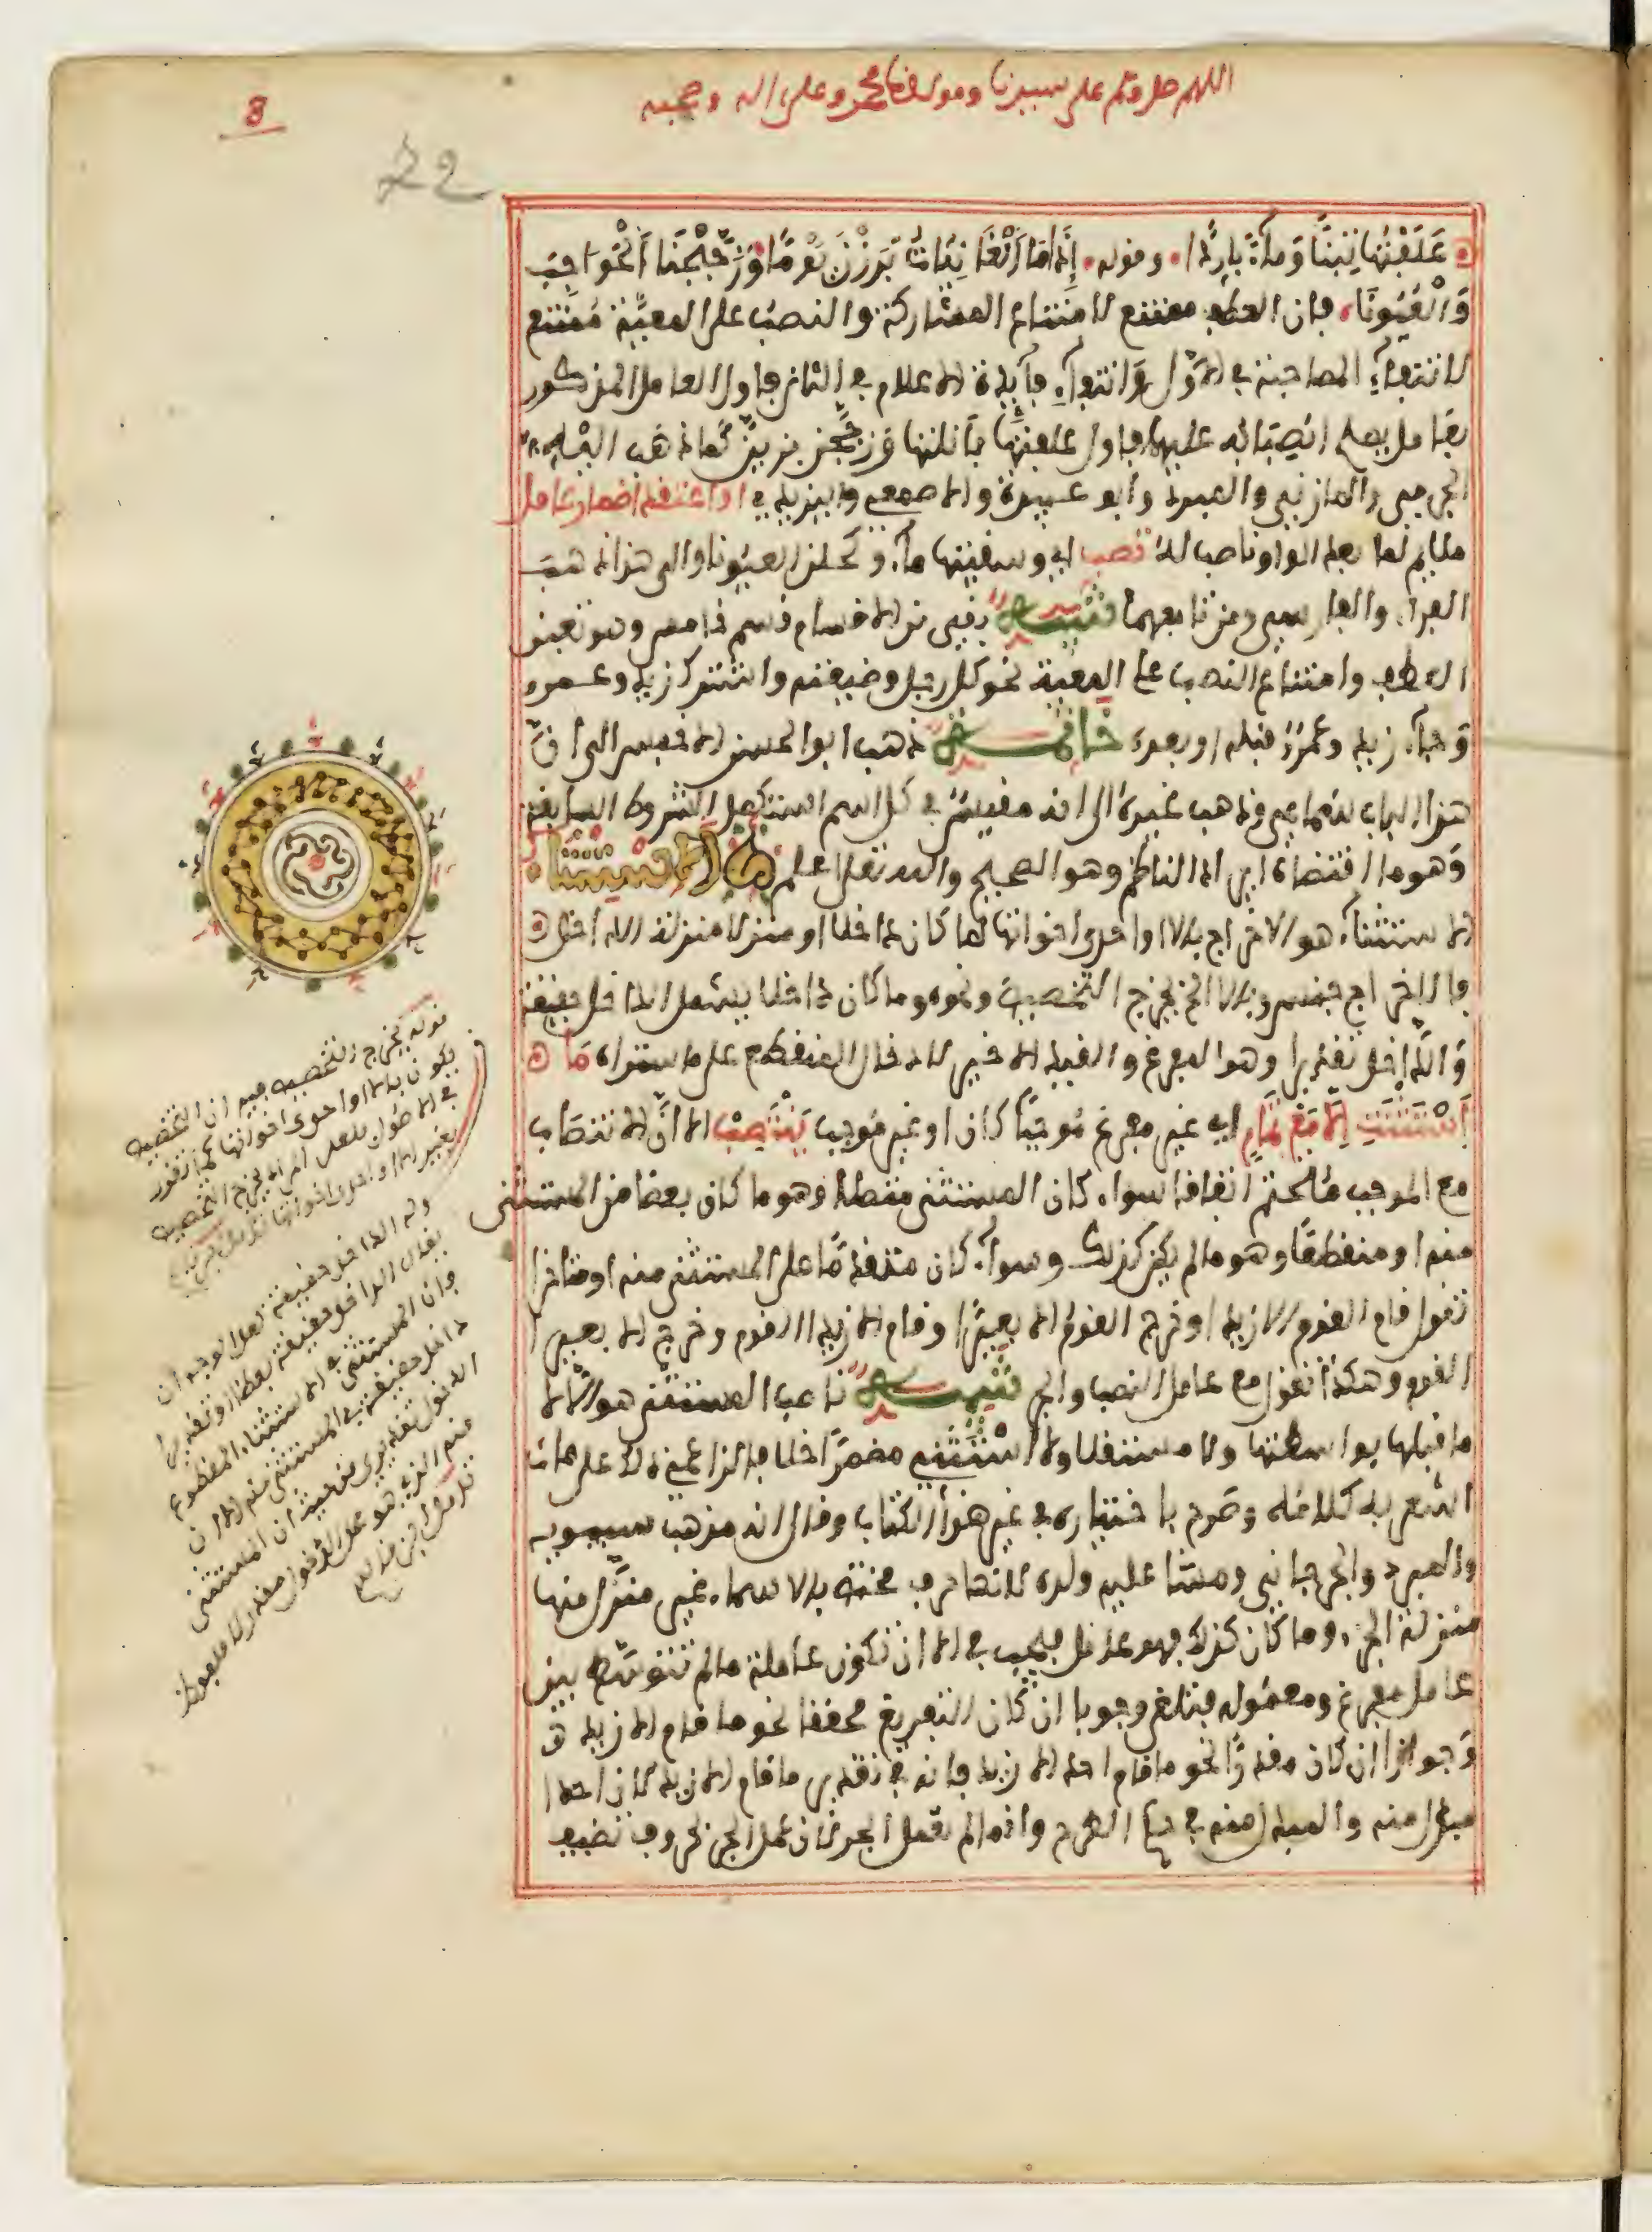 اللهم صل وسلم على سيدنا ومولانا محمد وعلى اله وصحبه
8
22
عَلَفْتُهَا تِبْنًا وَمَآءً بَارِدًا وقوله إِذَا مَا الْغَانِيَاتُ بَرَزْنَ يَوْمًا وَزَجَّجْنَ الْحَوَاجِبَ
وَالْعُيُونَا فان العطف ممتنع لامتناع المشاركة والنصب على المعية ممتنع
لانتفاء المصاحبة في الاول وانتفاء فآيدة الاعلام بها في الثاني فاول العامل المذكور
بعامل يصح انصبابه عليهما فاول علفتها بأنلتها وزججن بزين كما ذهب اليه
الجرمي والمازني والمبرد وابو عبيدة والاصمعي واليزيدي او اعتقد اضمار عامل
ملايم لما بعد الواو ناصب له تصب اي وسقيتها مآء وكحلن العيونا والى هذا ذهب
الفرآء والفارسي ومن تابعهما تنبيه بقي من الاقسام قسم خامس وهو تعين
العطف وامتناع النصب على المعية نحو كل رجل وضيعته واشترك زيد وعمرو
وجآء زيد وعمرو قبله او بعده خاتمة ذهب ابو الحسن الاخفش الى ان
هذا الباب سماعي وذهب غيره الى انه مقيس في كل اسم استكمل الشروط السابقة
وهو ما اقتضاه ايراد الناظم وهو الصحيح والله تعالى اعلم الاستثنا
الاستثنآء هو الاخراج بالا او احدى اخواتها لما كان داخلا او منزلا منزلة الداخل
فالاخراج جنس وبالا الخ يخرج التخصيص ونحوه وما كان داخلا يشمل الداخل حقيقة
والداخل تقديرا وهو المفرغ والقيد الاخير لادخال المنقطع على ما ستراه مَا
اسْتَثْنَتِ إلَّا مَعْ تَمَامٍ اي غير مفرغ موجبا كان او غير موجب يَنْتَصِبْ الا ان الانتصاب
مع الموجب متحتم اتفاقا سواء كان المستثنى متصلا وهو ما كان بعضا من المستثنى
منه او منقطعا وهو ما لم يكن كذلك وسوآء كان متقدما على المستثنى منه او متاخرا
تقول قام القوم الا زيدا وخرج القوم الا بعيرا وقام الا زيدا القوم وخرج الا بعيرا
القوم وهكذا تقول مع عامل النصب والجر تنبيه ناصب المستثنى هو الا لا
ما قبلها بواسطتها ولا مستقلا ولا استثني مضمرا خلافا لزاعمي ذلك على ما
اشعر به كلامه وصرح باختياره في غير هذا الكتاب وقال انه مذهب سيبويه
والمبرد والجرجاني ومشا عليه ولده لانها حرف مختص بالاسماء غير منزل منها
منزلة الجزء وما كان كذلك فهو عامل فيجب في الا ان تكون عاملة ما لم تتوسط بين
عامل مفرغ ومعموله فتلغى وجوبا ان كان التفريغ محققا نحو ما قام الا زيد
وجوازا ان كان مقدرا نحو ما قام احد الا زيد فانه في تقدير ما قام الا زيد لان احدا
مبدل منه والمبدل منه في حكم الطرح وانما لم تعمل الجر لان عمل الجر بحروف تضيف
قوله يخرج التخصيص فيه ان التخصيص
يكون بالا او احدى اخواتها كما تقرر
في الاصول فلعل المراد يخرج التخصيص
بغير الا او احدى اخواتها
قوله الداخل حقيقة لعل الوجه ان
يقال الداخل حقيقة بعضا او تقديرا
وان المستثنى في الاستثناء المنقطع
داخل حقيقة في المستثنى منه الا ان
الدخول تقديري من حيث ان المستثنى
منه الذي هو محل الدخول مقدر لا ملفوظ